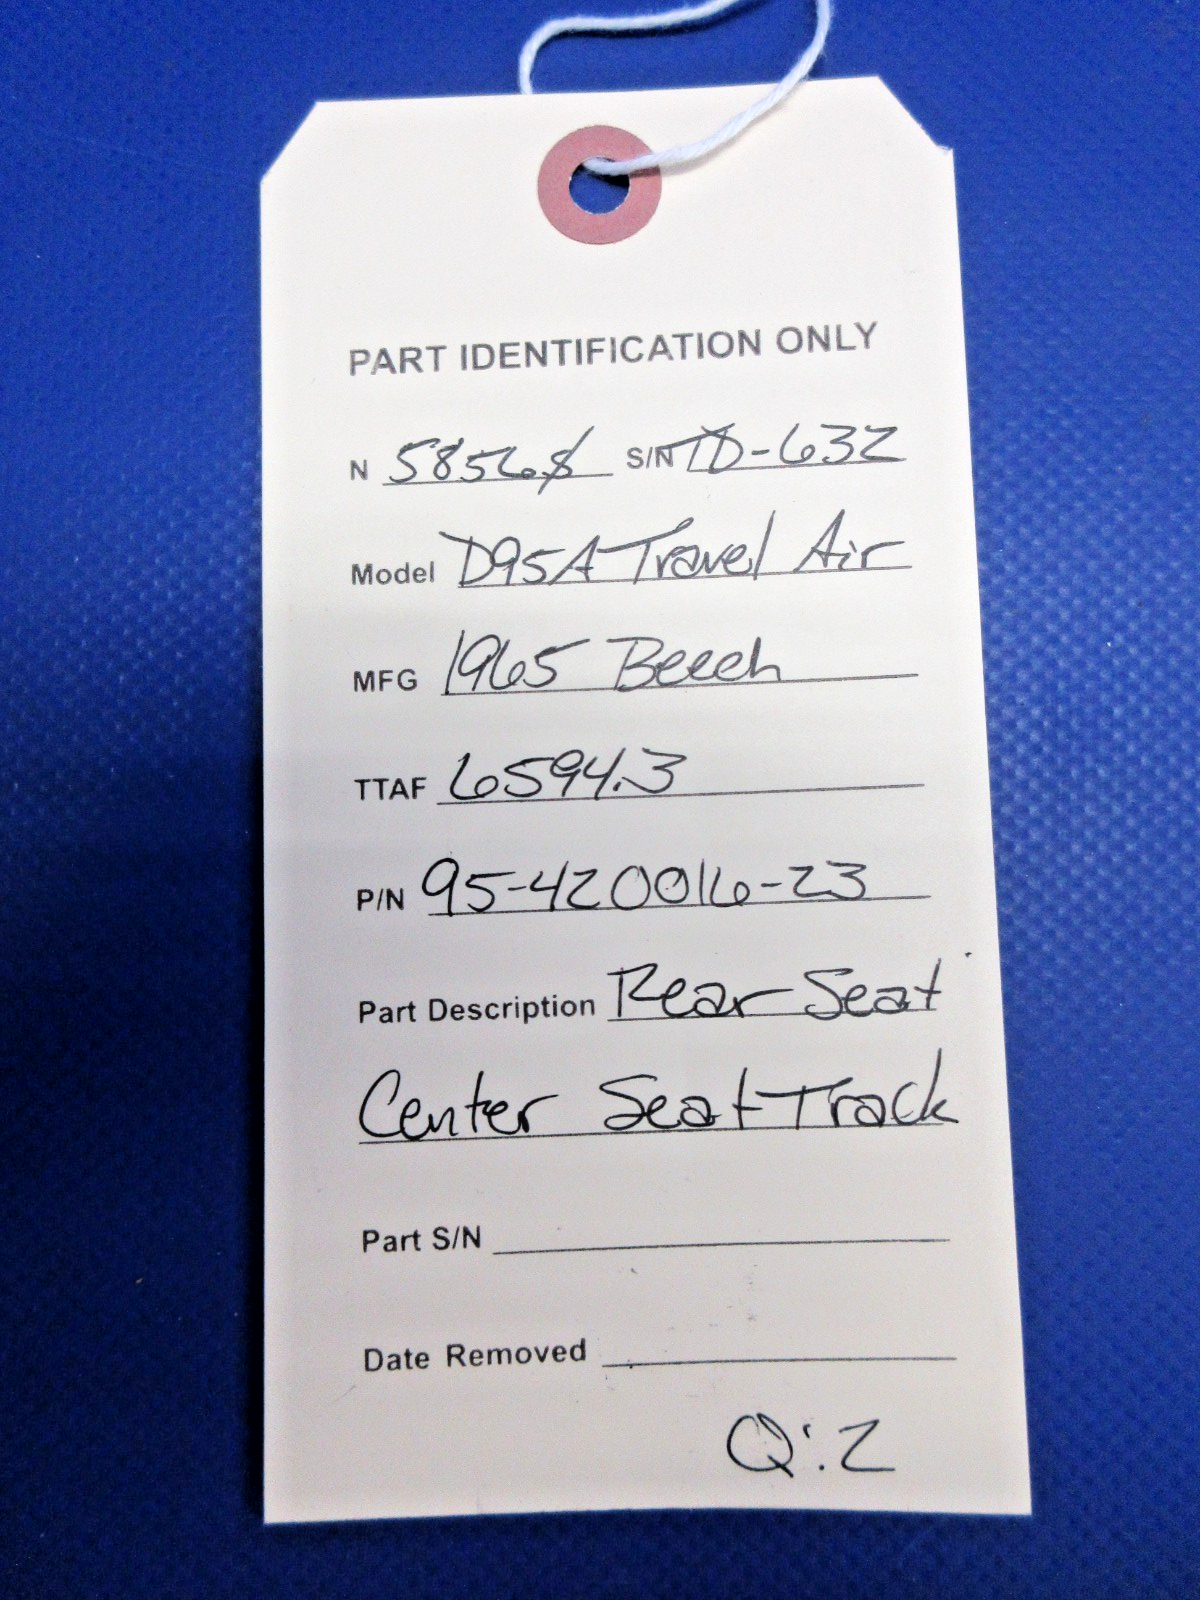 PART IDENTIFICATION ONLY
N 5856S S/N TD-632
Model D95A Travel Air
MFG 1965 Beech
TTAF 6594.3
P/N 95-420016-23
Part Description Rear Seat
Center Seat Track
Part S/N
Date Removed
Q:2